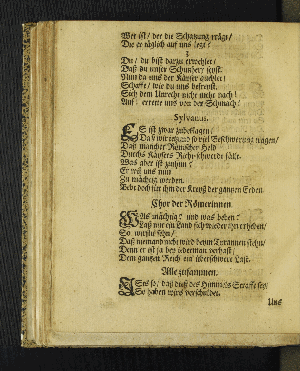 Wer ist / der die Schatzung trägt /
Die er täglich auf uns legt?
3
Du / du bist darzu erwehlet /
Daß du unser Schutzherr seyst.
Nun da uns der Käiser quehlet /
Schaffe / wie du uns befreyst.
Sieh dem Unrecht nicht mehr nach!
Auf! errette uns von der Schmach!
Sylvanus.
ES ist zwar zubeklagen /
Daß wir so viel Beschwerung tragen /
Daß mancher Römischer Held
Durchs Käysers Richt-schwerdt fällt.
Was aber ist zuthun?
Er ist uns nun
Zu mächtig werden.
Bebt doch für ihm der Kreyß der gantzen Erden.
Chor der Römerinnen.
WAs mächtig? und was beben?
Laß nur ein Land sich wieder ihn erheben /
So wirstu sehn /
Daß niemand nicht wird beym Tyrannen stehn /
Denn er ist ja bey iederman verhast /
Dem gantzen Reich ein überschwere Last.
Alle zusammen.
ISts so / daß dieß des Himmels Straffe sey /
So haben wirs verschuldet.
Uns